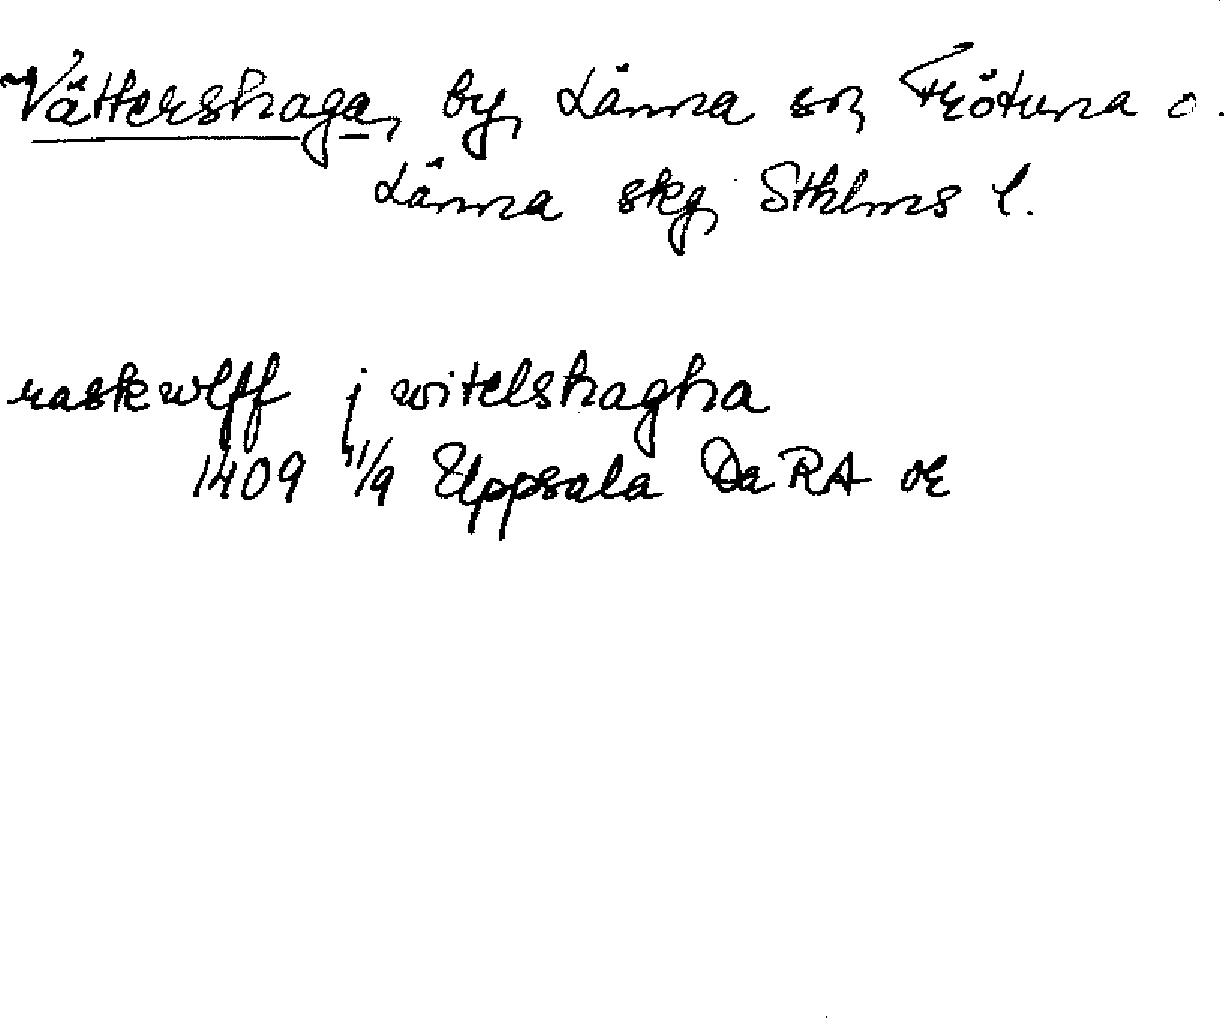 Vättershaga, by, Länna sn, Frötuna o.
Länna skg, Sthlms l.
raskwlff j witelshagha
1409 11/9 Uppsala Da RA or